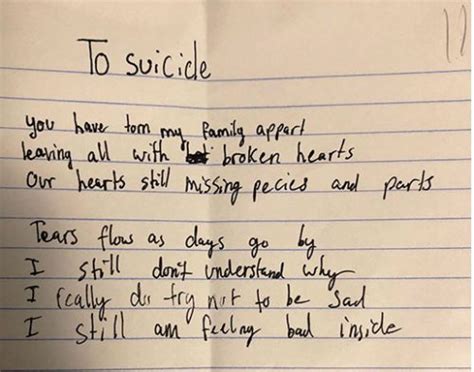 To suicide
You have torn my family appart
leaving all with broken hearts
Our hearts still missing pecies and parts
Tears flow as days go by
I still don't understand why
I really do try not to be sad
I still am feeling bad inside